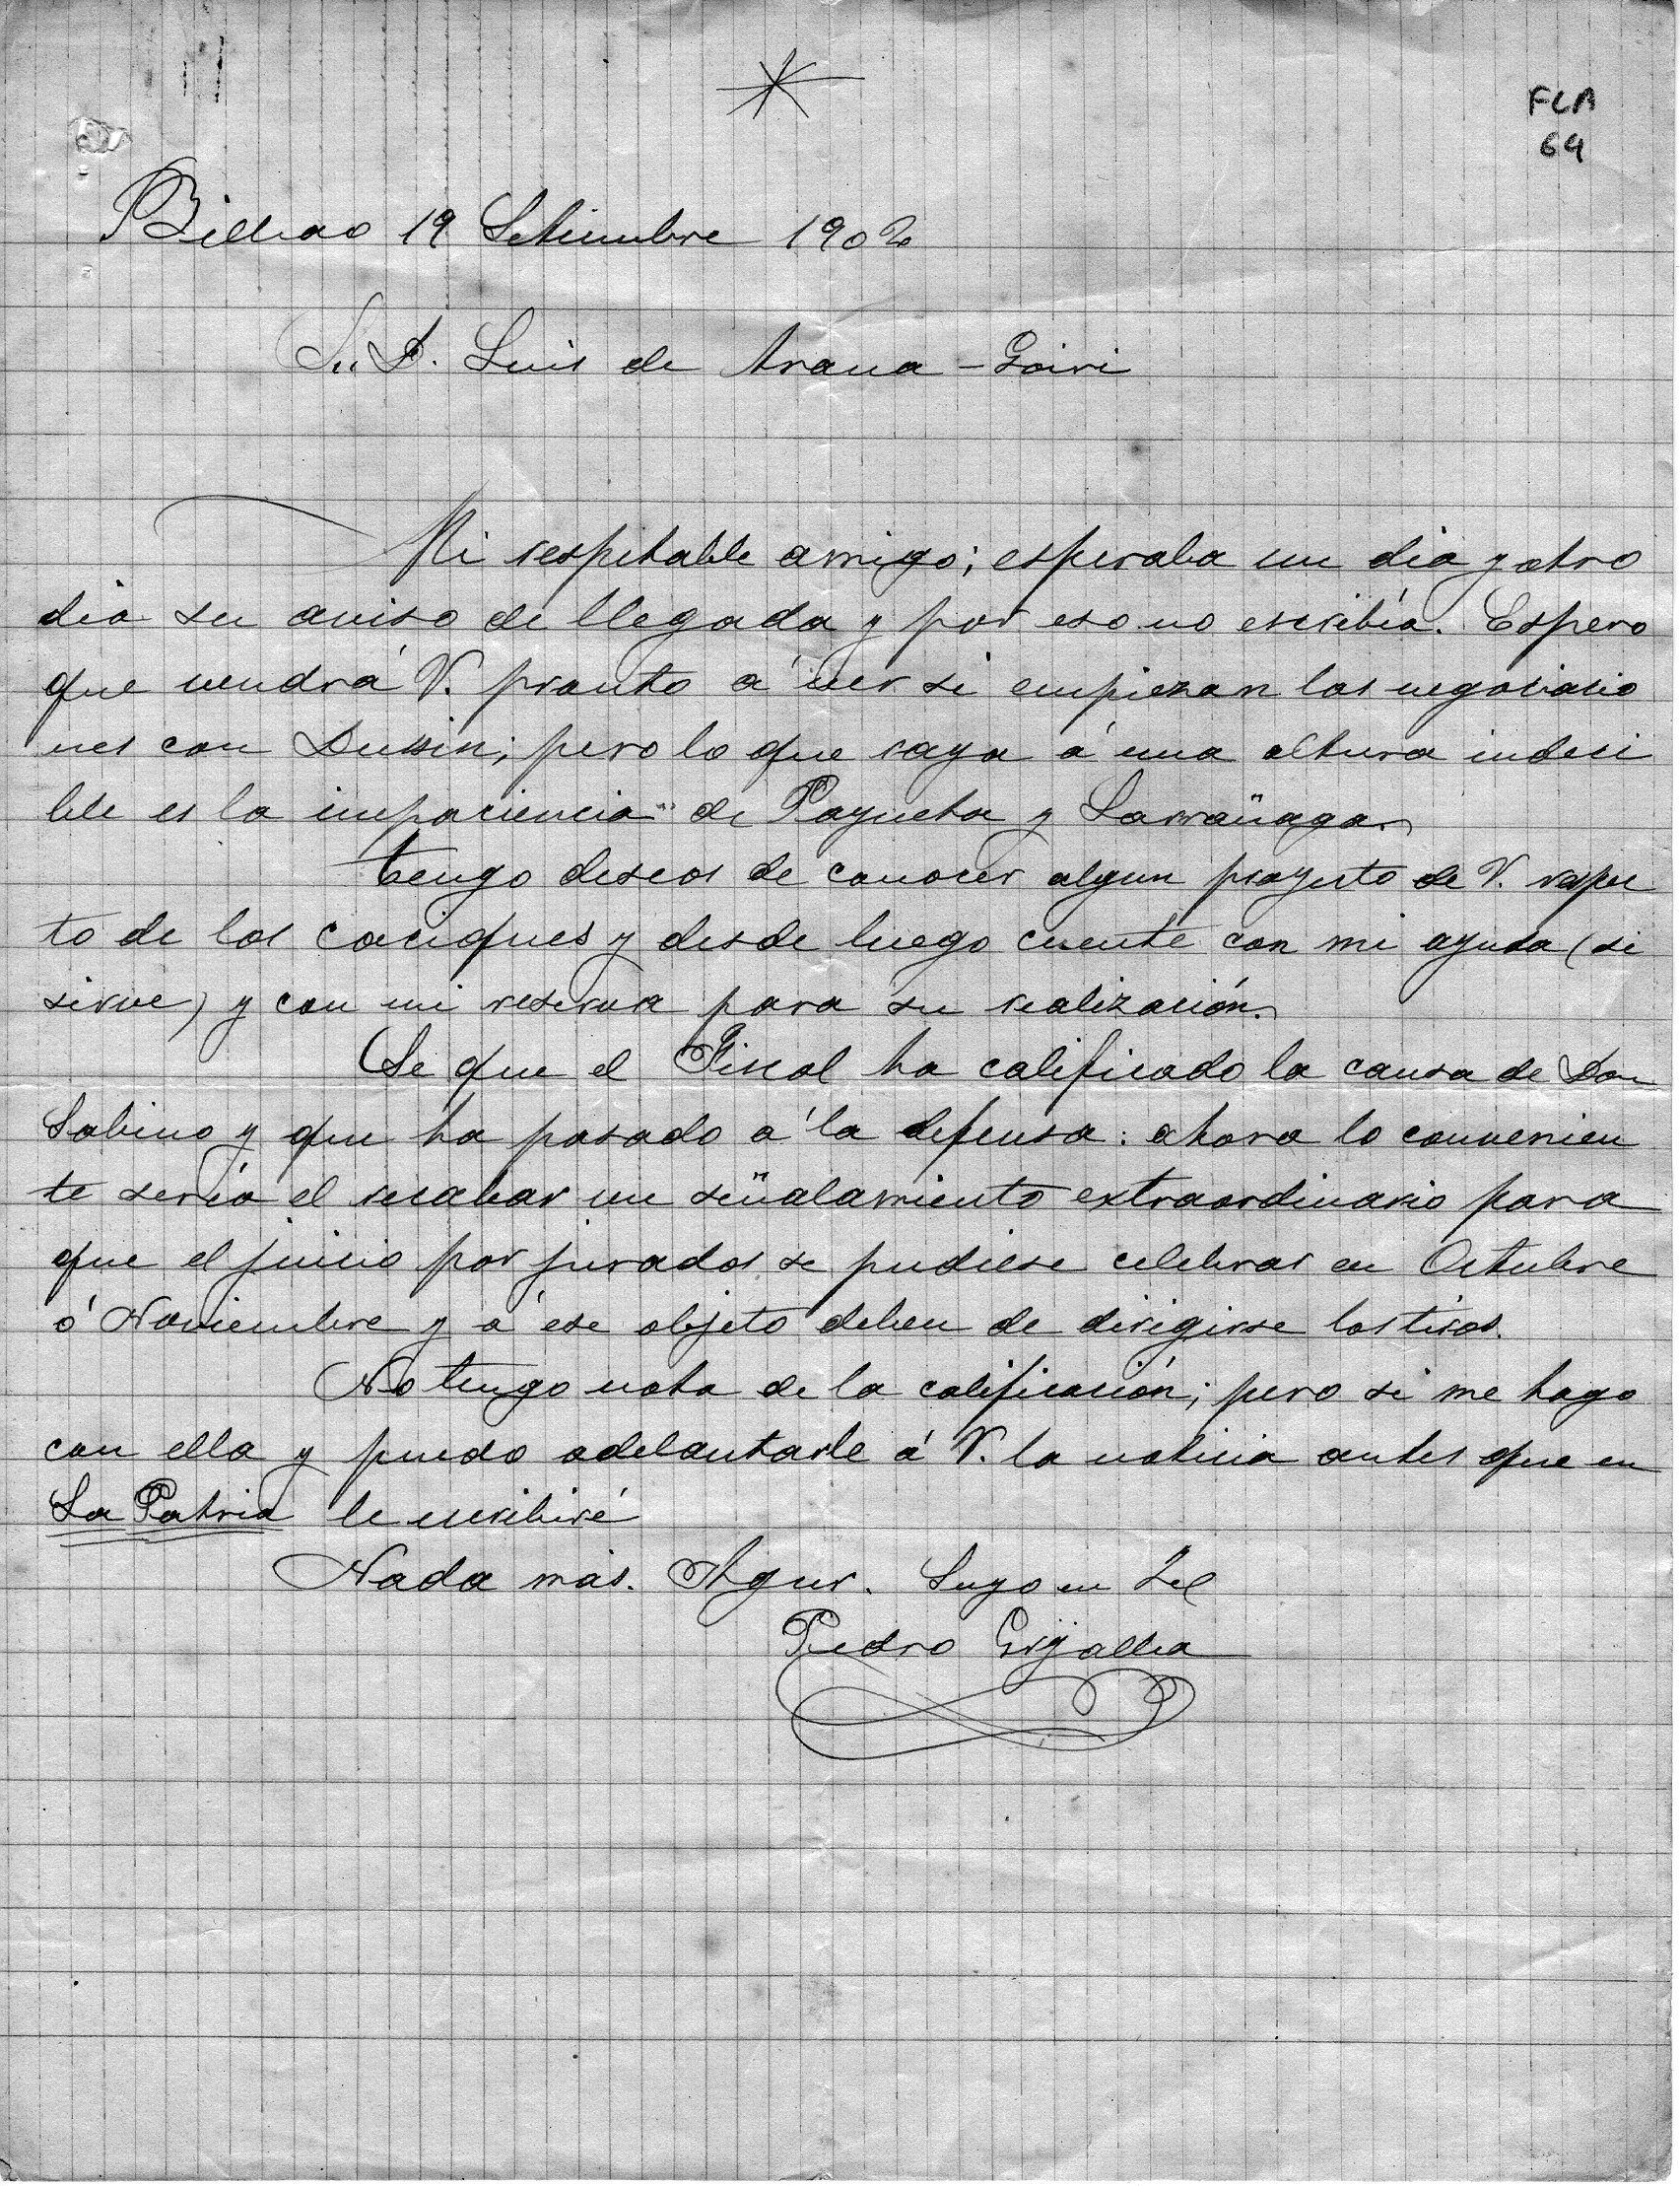 FLA
64
Bilbao 19 Setiembre 1902
Sr. D. Luis de Arana-Goiri
Mi respetable amigo; esperaba un dia y otro
dia su aviso de llegada y por eso no escribía. Espero
que vendrá V. pronto á ver si empiezan las negociacio
nes con Dussin; pero lo que raya á una altura indeci
ble es la impaciencia de Poyneta y Larrañaga.
Tengo deseos de conocer algun proyecto de V. respec
to de los caciques y desde luego cuente con mi ayuda (si
sirve) y con mi reserva para su realización.
Se que el Fiscal ha calificado la causa de Don
Sabino y que ha pasado á la defensa: ahora lo convenien
te sería el recabar un señalamiento extraordinario para
que el juicio por jurados se pudiese celebrar en Octubre
ó Noviembre y á ese objeto deben de dirigirse los tiros.
No tengo nota de la calificación; pero si me hago
con ella y puedo adelantarle á V. la noticia antes que en
La Patria le escribiré
Nada más. Agur. Suyo en Jel
Pedro Grijalba